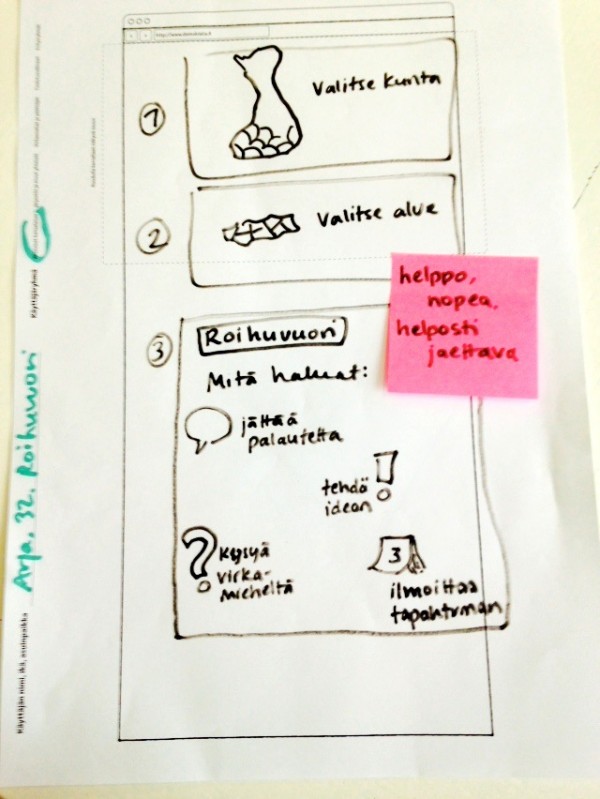 http://www.demokratia.fi
1
Valitse kunta
2
Valitse alue
helppo,
nopea,
helposti
jaettava
3
Roihuvuori
Mitä haluat:
jättää
palautetta
tehdä
idean
kysyä
virka-
mieheltä
3
ilmoittaa
tapahtuman
Käyttäjän nimi, ikä, asuinpaikka
Arja, 32, Roihuvuori
Käyttäjäryhmä